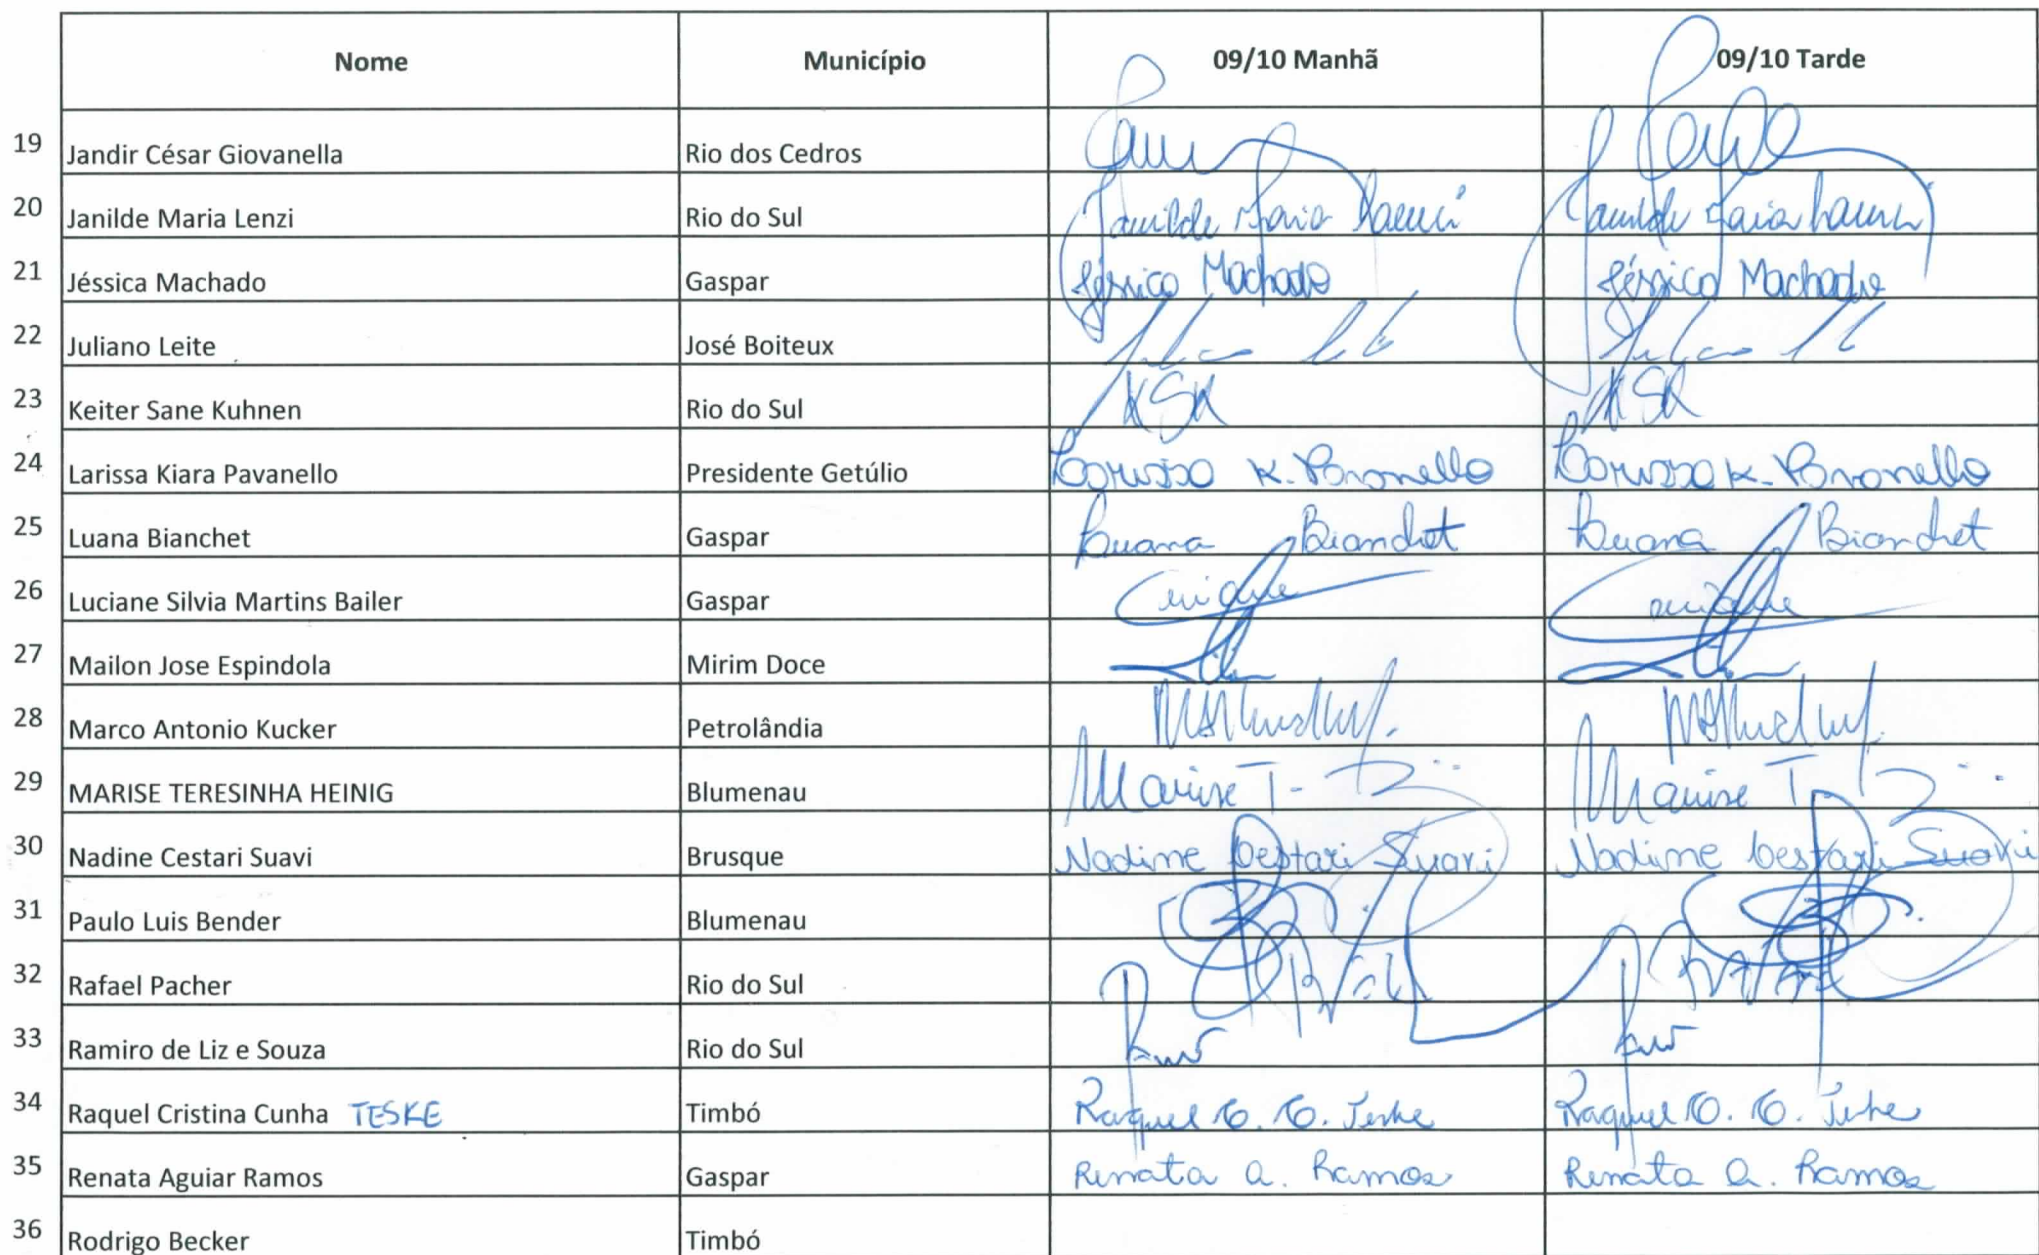 Nome Município 09/10 Manhã 09/10 Tarde
19 Jandir César Giovanella Rio dos Cedros
20 Janilde Maria Lenzi Rio do Sul Janilde Maria Janilde Maria
21 Jéssica Machado Gaspar Jéssica Machado Jéssica Machado
22 Juliano Leite José Boiteux
23 Keiter Sane Kuhnen Rio do Sul KSK KSK
24 Larissa Kiara Pavanello Presidente Getúlio Larissa K. Pavanello Larissa K. Pavanello
25 Luana Bianchet Gaspar Luana Bianchet Luana Bianchet
26 Luciane Silvia Martins Bailer Gaspar
27 Mailon Jose Espindola Mirim Doce
28 Marco Antonio Kucker Petrolândia
29 MARISE TERESINHA HEINIG Blumenau Marise T. Marise T.
30 Nadine Cestari Suavi Brusque Nadine Cestari Suavi Nadine Cestari Suavi
31 Paulo Luis Bender Blumenau
32 Rafael Pacher Rio do Sul
33 Ramiro de Liz e Souza Rio do Sul
34 Raquel Cristina Cunha TESKE Timbó Raquel C. C. Teske Raquel C. C. Teske
35 Renata Aguiar Ramos Gaspar Renata A. Ramos Renata A. Ramos
36 Rodrigo Becker Timbó